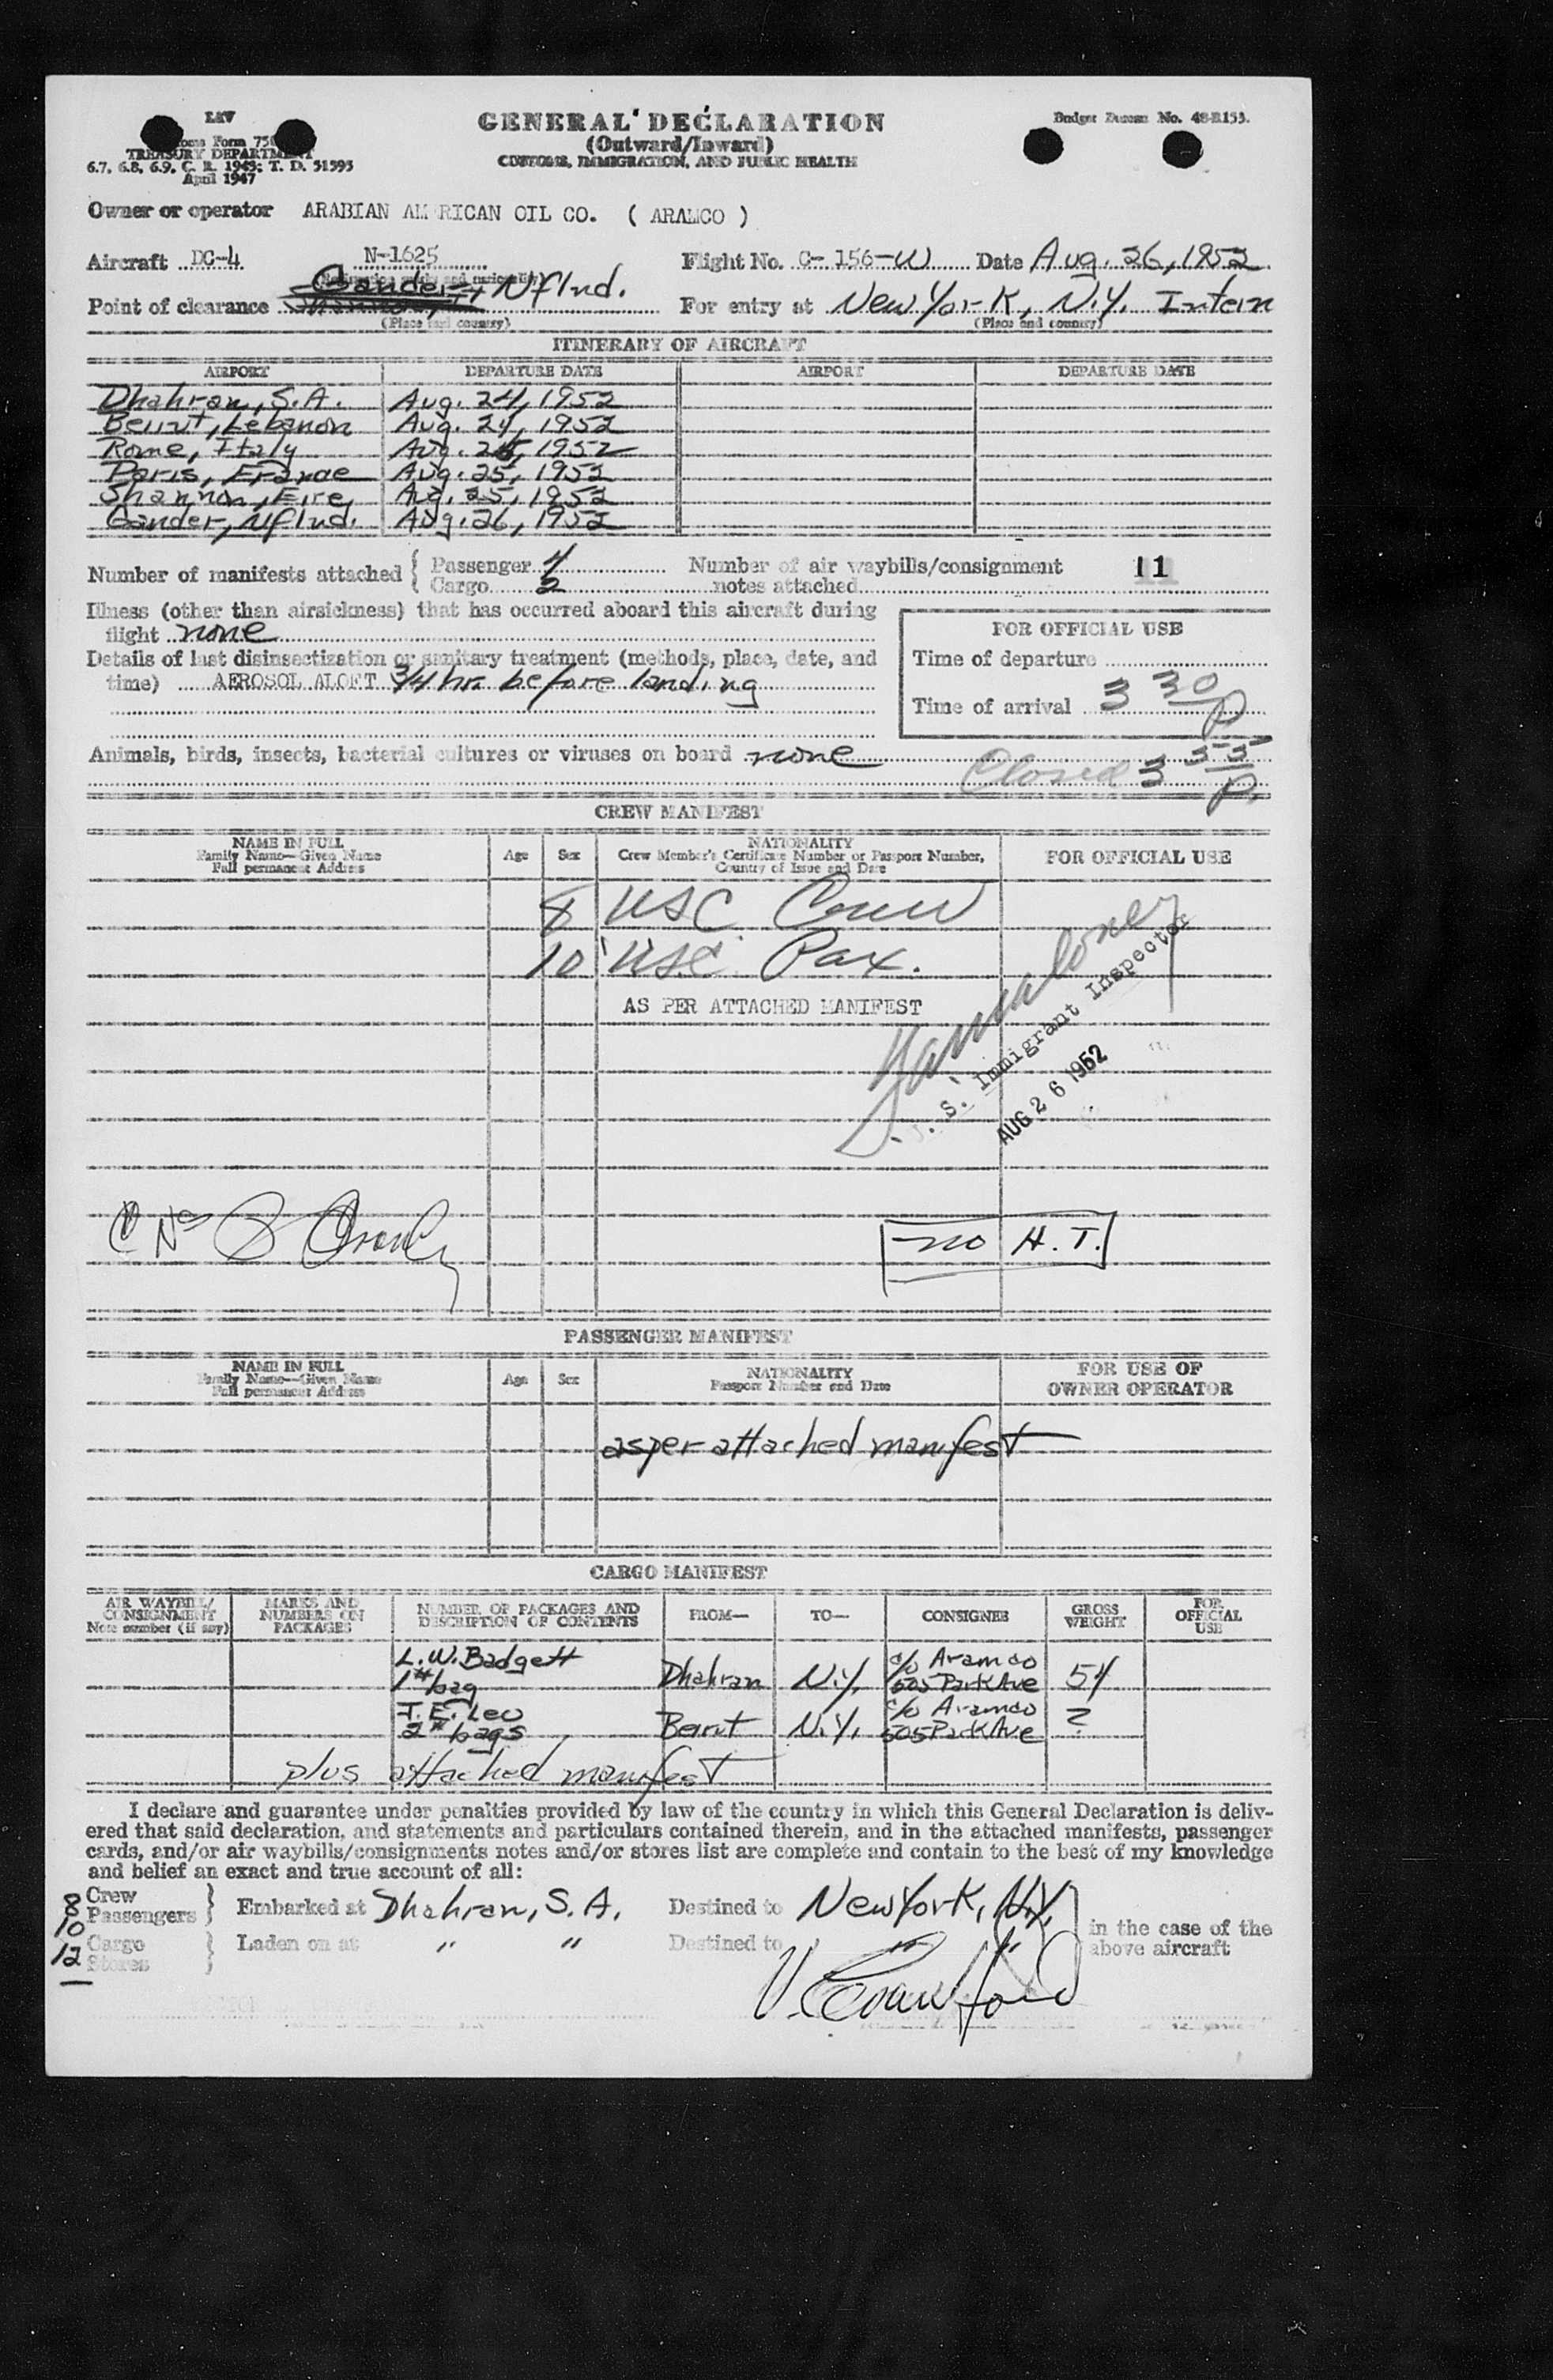 GENERAL DECLARATION
(Outward/Inward)
CUSTOMS, IMMIGRATION, AND PUBLIC HEALTH
Form 750
TREASURY DEPARTMENT
6.7, 6.8, 6.9, C. R. 1943; T. D. 51595
April 1947
No. 48-R153.
Owner or operator ARABIAN AM RICAN OIL CO. ( ARAMCO )
Aircraft DC-4 N-1625 Flight No. C-156-W Date Aug. 26, 1952
Point of clearance Gander, Nflnd. For entry at New York, N.Y. Intern
(Place and country) (Place and country)
ITINERARY OF AIRCRAFT
AIRPORT DEPARTURE DATE AIRPORT DEPARTURE DATE
Dhahran, S.A. Aug. 24, 1952
Beirut, Lebanon Aug. 24, 1952
Rome, Italy Aug. 25, 1952
Paris, France Aug. 25, 1952
Shannon, Eire, Aug. 25, 1952
Gander, Nflnd. Aug. 26, 1952
Number of manifests attached { Passenger Number of air waybills/consignment 11
Cargo 2 notes attached
Illness (other than airsickness) that has occurred aboard this aircraft during
flight none
FOR OFFICIAL USE
Details of last disinsectization or sanitary treatment (methods, place, date, and
time) AEROSOL ALOFT 3/4 hr. before landing
Time of departure
Time of arrival 3 30/P
Animals, birds, insects, bacterial cultures or viruses on board none
Closed 3 55/P.
CREW MANIFEST
NAME IN FULL Age Sex NATIONALITY FOR OFFICIAL USE
Family Name—Given Name Crew Member's Certificate Number or Passport Number,
Full permanent Address Country of Issue and Date
8 USC Crew
10 USC Pax.
AS PER ATTACHED MANIFEST
S. Immigrant Inspector
AUG 26 1952
no H. T.
PASSENGER MANIFEST
NAME IN FULL Age Sex NATIONALITY FOR USE OF
Family Name—Given Name Passport Number and Date OWNER OPERATOR
Full permanent Address
as per attached manifest
CARGO MANIFEST
AIR WAYBILL/ MARKS AND NUMBER OF PACKAGES AND FROM— TO— CONSIGNEE GROSS FOR
CONSIGNMENT NUMBERS ON DESCRIPTION OF CONTENTS WEIGHT OFFICIAL
Note number (if any) PACKAGES USE
L. W. Badgett c/o Aramco
1 bag Dhahran N.Y. 505 Park Ave 54
c/o Aramco
2 bags Beirut N.Y. 505 Park Ave ?
plus attached manifest
I declare and guarantee under penalties provided by law of the country in which this General Declaration is deliv-
ered that said declaration, and statements and particulars contained therein, and in the attached manifests, passenger
cards, and/or air waybills/consignments notes and/or stores list are complete and contain to the best of my knowledge
and belief an exact and true account of all:
8 Crew
10 Passengers } Embarked at Dhahran, S. A. Destined to New York, N.Y. in the case of the
12 Cargo Laden on at " " Destined to " " above aircraft
Stores }
V. Crawford